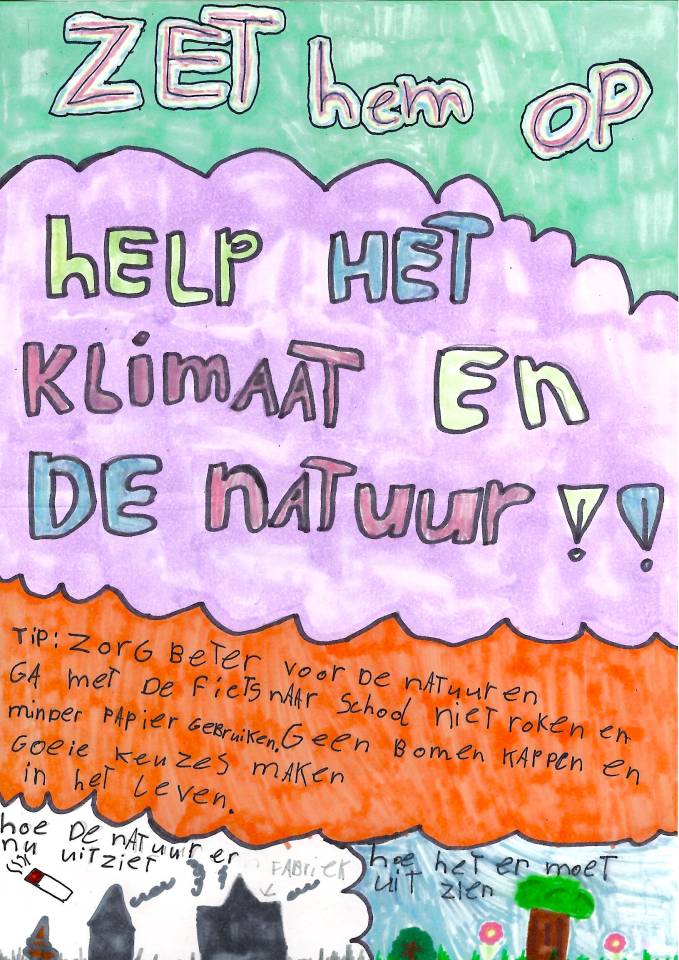 ZET hem OP
hELP HET
KLimAAT En
DE nATuur!!
TiP: Zorg BeTer voor De nATuur en
GA meT De FieTs nAAr School nieT roken en
minDer PAPier GeBruiken. Geen Bomen KAPPen en
Goeie keuzes mAKen
in heT Leven.
hoe De nATuur er
nu uitzieT
FABrieK
hoe heT er moeT
uiT zien